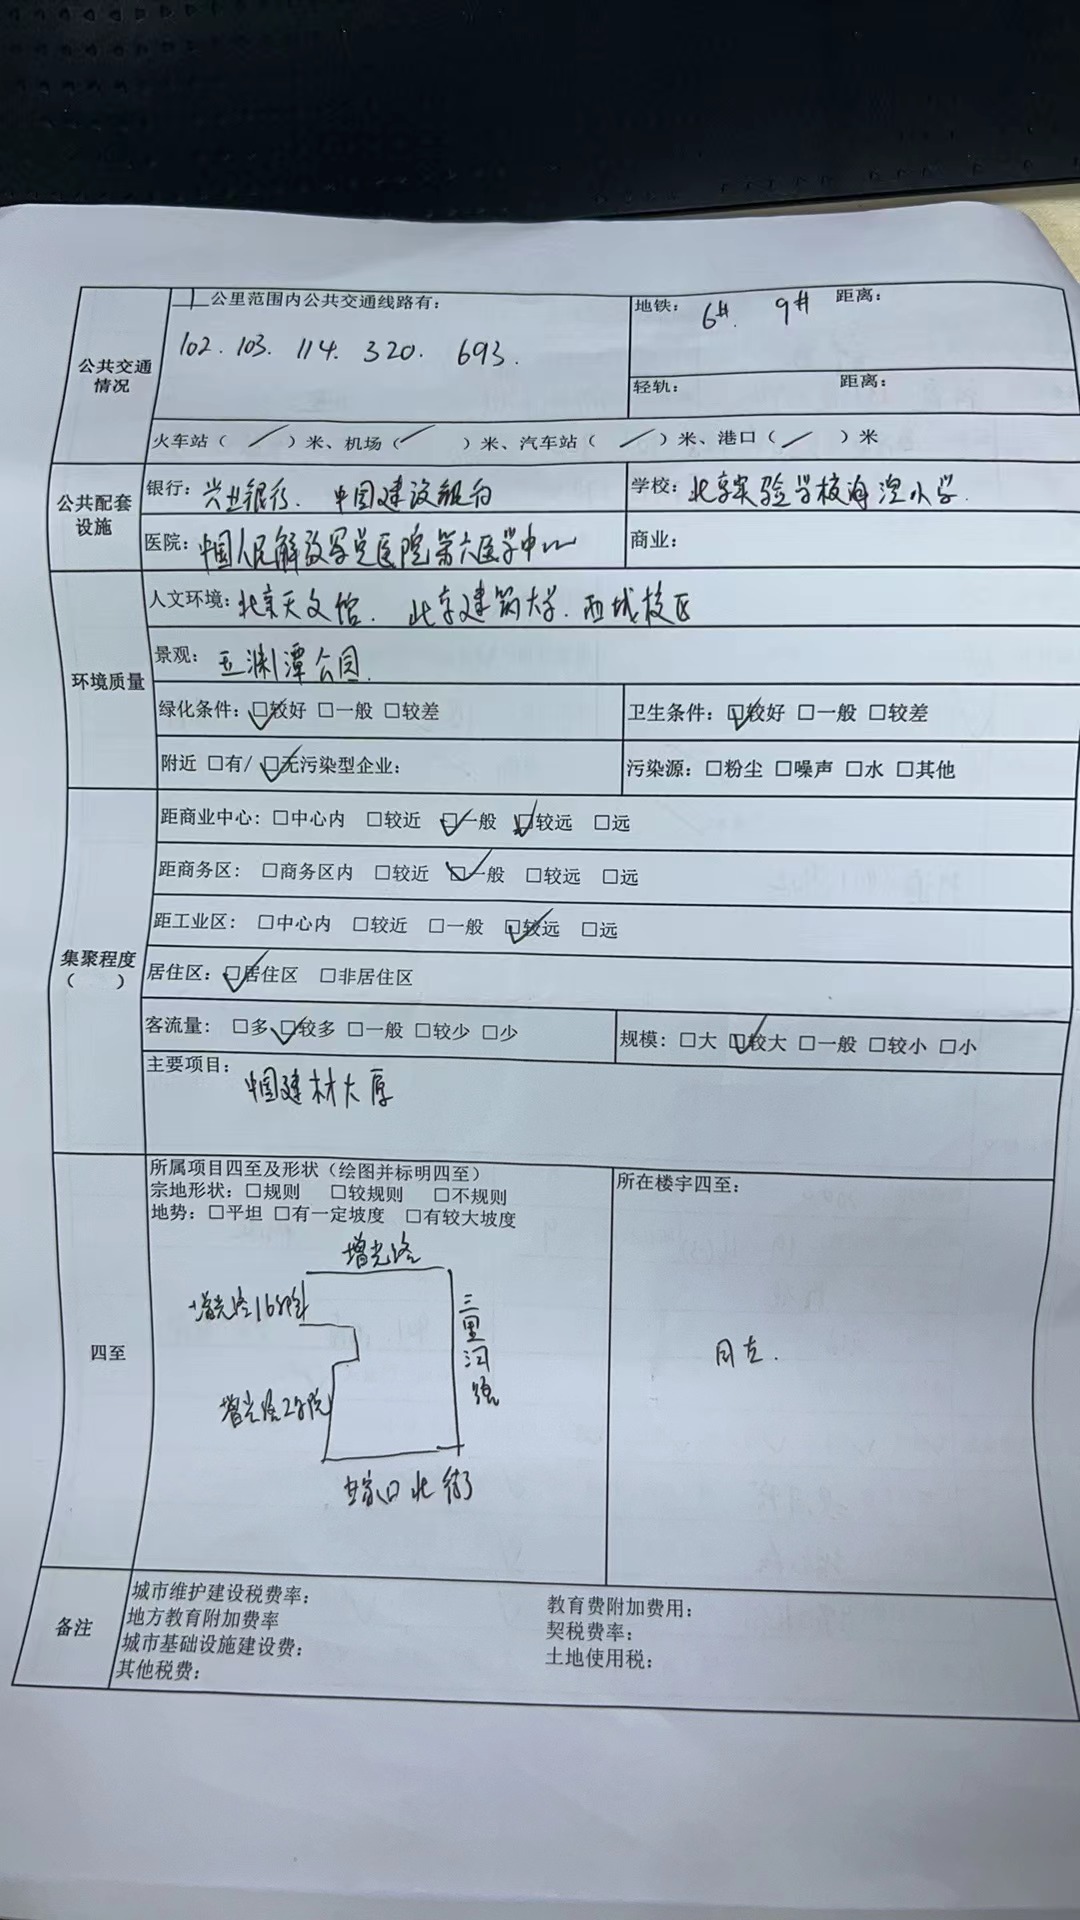 1公里范围内公共交通线路有:
地铁: 6# 9# 距离:
102. 103. 114. 320. 693.
公共交通情况
轻轨: 距离:
火车站( / )米、机场( / )米、汽车站( / )米、港口( / )米
公共配套设施
银行: 兴业银行. 中国建设银行
学校: 北京实验学校海淀小学.
医院: 中国人民解放军总医院第六医学中心
商业:
环境质量
人文环境: 北京天文馆. 北京建筑大学.西城校区
景观: 玉渊潭公园.
绿化条件: ☑较好 □一般 □较差
卫生条件: ☑较好 □一般 □较差
附近 □有/ ☑无污染型企业:
污染源: □粉尘 □噪声 □水 □其他
集聚程度
( )
距商业中心: □中心内 □较近 ☑一般 ☑较远 □远
距商务区: □商务区内 □较近 ☑一般 □较远 □远
距工业区: □中心内 □较近 □一般 ☑较远 □远
居住区: ☑居住区 □非居住区
客流量: □多 ☑较多 □一般 □较少 □少
规模: □大 ☑较大 □一般 □较小 □小
主要项目: 中国建材大厦
四至
所属项目四至及形状(绘图并标明四至)
宗地形状: □规则 □较规则 □不规则
地势: □平坦 □有一定坡度 □有较大坡度
增光路
增光路16号院
三里河路
增光路2号院
北街
所在楼宇四至:
同左.
备注
城市维护建设税费率:
教育费附加费用:
地方教育附加费率
契税费率:
城市基础设施建设费:
土地使用税:
其他税费: